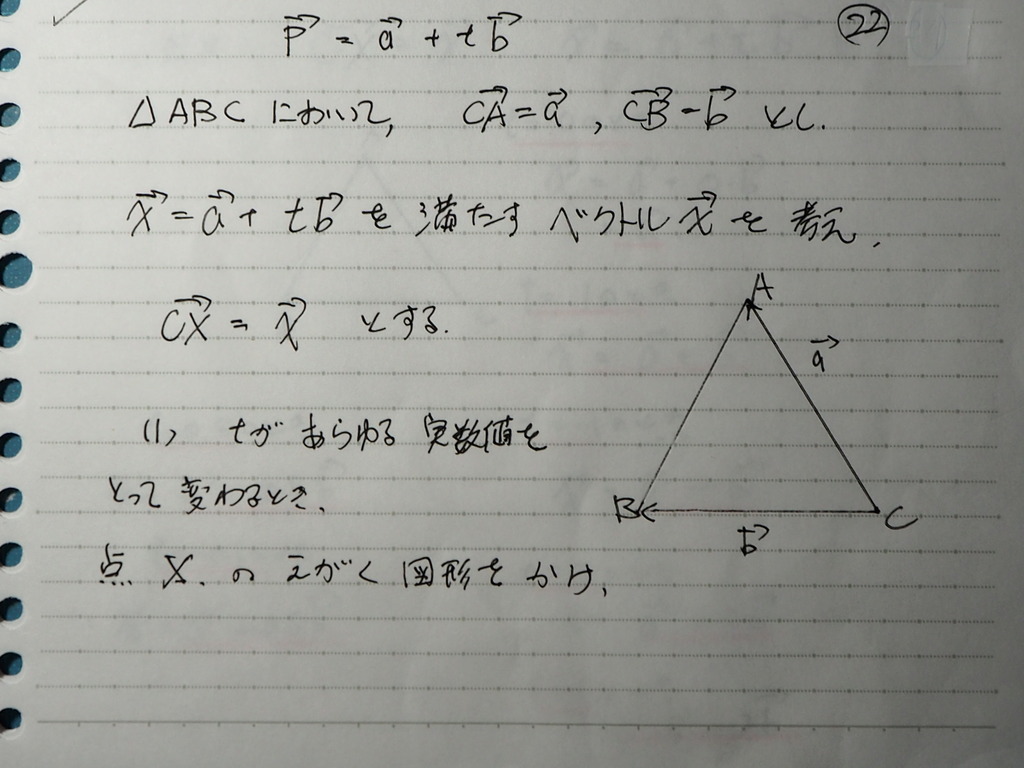 p⃗ = a⃗ + t b⃗
22
△ABC において, CA⃗ = a⃗ , CB⃗ = b⃗ とし.
x⃗ = a⃗ + t b⃗ を満たす ベクトル x⃗ を 考え,
CX⃗ = x⃗ とする.
A
a⃗
(1) tが あらゆる 実数値を
とって 変わるとき,
B
C
b⃗
点 X. の えがく 図形を かけ,